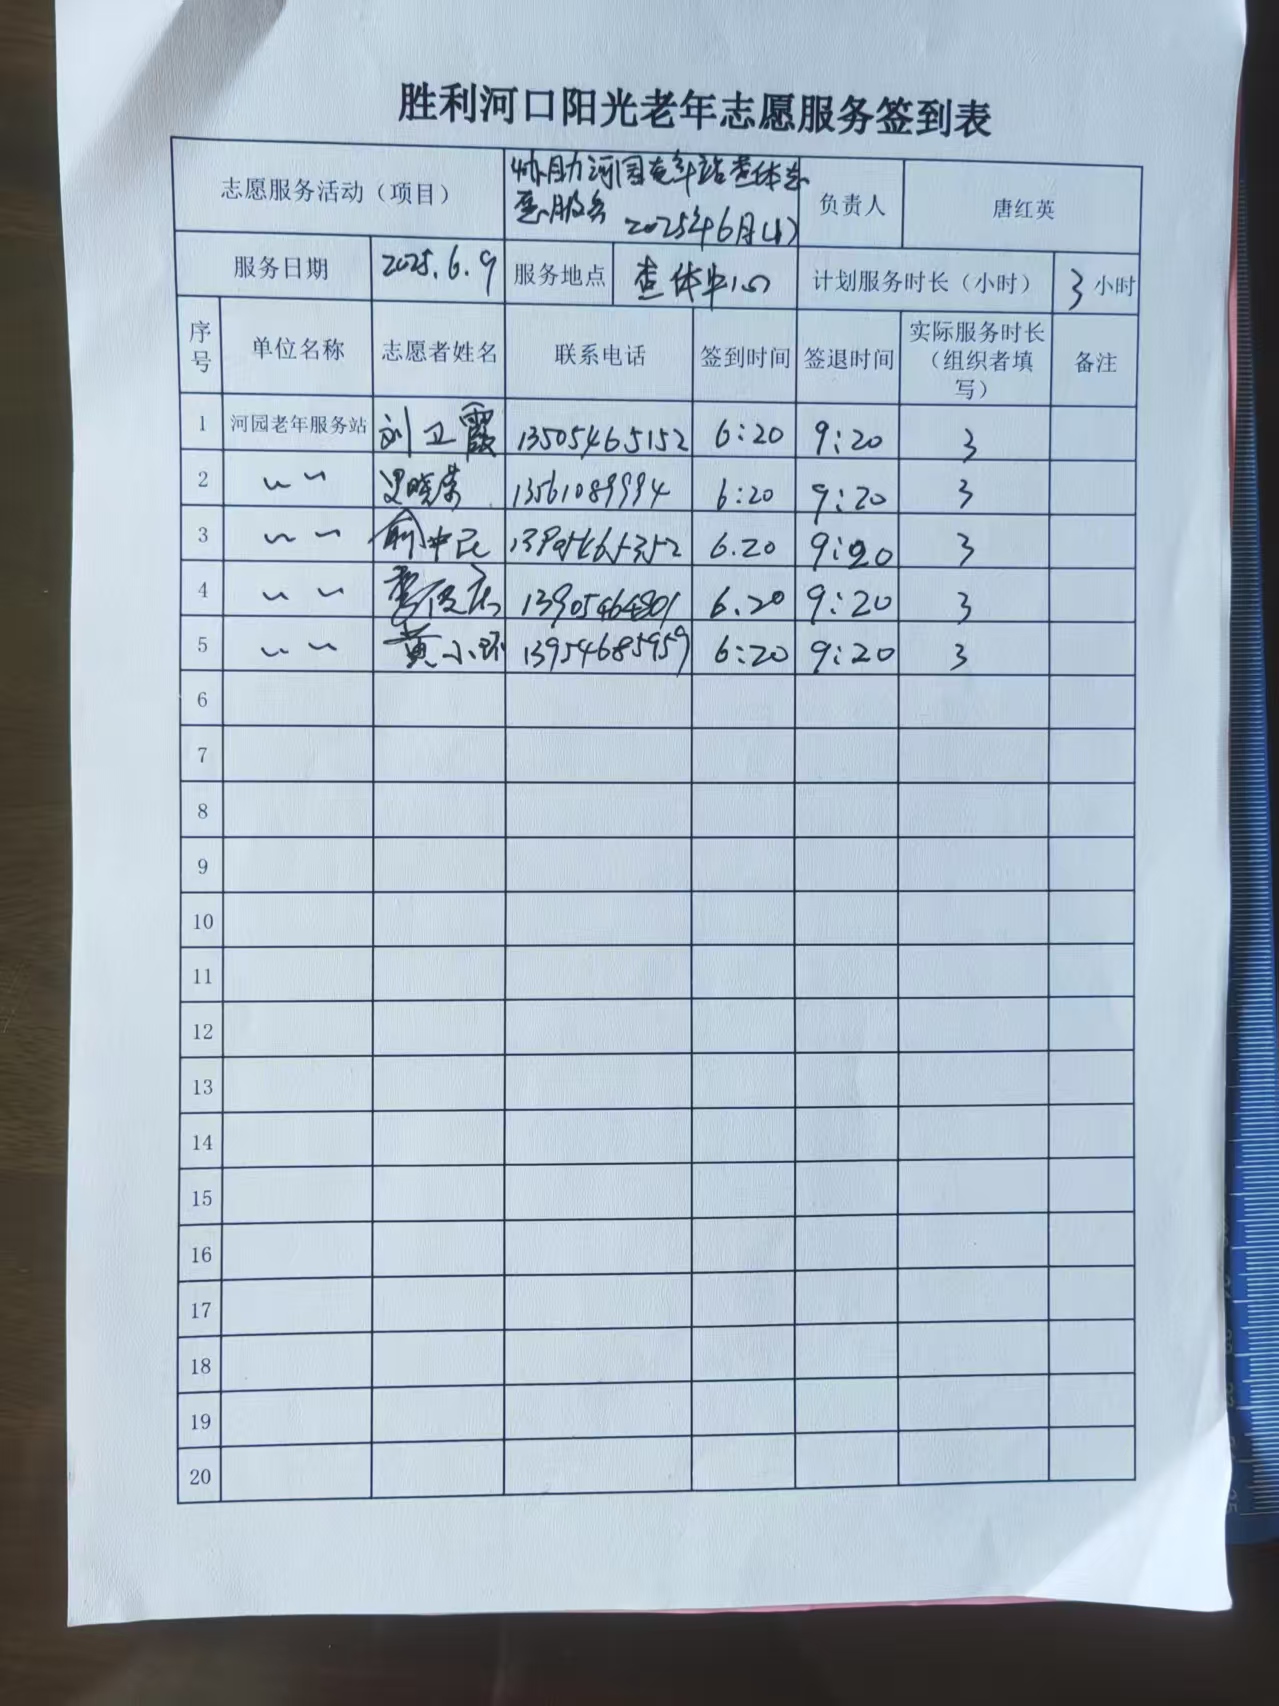 胜利河口阳光老年志愿服务签到表
志愿服务活动（项目） 协助河园老年站查体志愿服务 2025年6月(1) 负责人 唐红英
服务日期 2025.6.9 服务地点 查体中心 计划服务时长（小时） 3小时
序号 单位名称 志愿者姓名 联系电话 签到时间 签退时间 实际服务时长（组织者填写） 备注
1 河园老年服务站 刘卫霞 13505465152 6:20 9:20 3
2 〃 〃 晓荣 13561089994 6:20 9:20 3
3 〃 〃 俞中民 6.20 9:20 3
4 〃 〃 13905464801 6.20 9:20 3
5 〃 〃 黄小环 13954685959 6:20 9:20 3
6
7
8
9
10
11
12
13
14
15
16
17
18
19
20